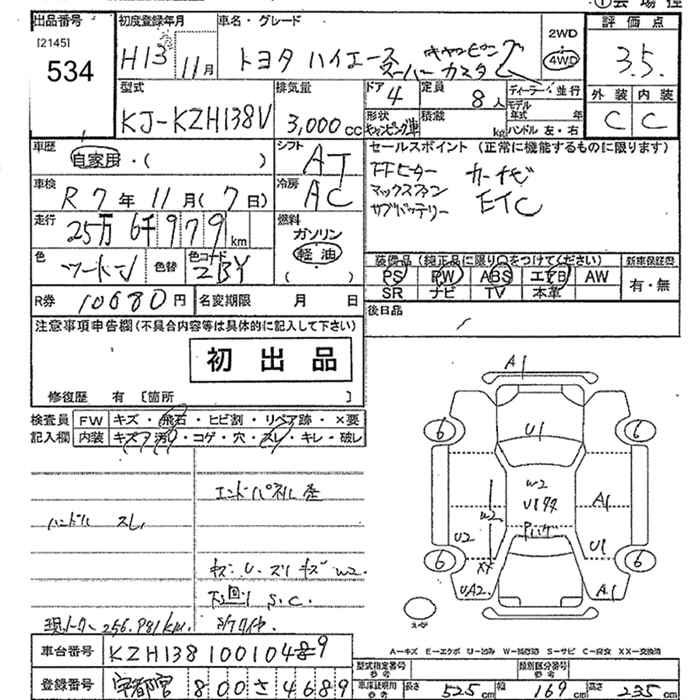 出品番号 初度登録年月 車名・グレード 2WD 評価点
[2145]
534
H13 11月 トヨタ ハイエース キャンピング スーパーカスタム 4WD 3.5.
型式 排気量 ドア 定員 ディーラー・並行 外装 内装
KJ-KZH138V 3,000cc 4 8人 モデル年式 年
形状 キャンピング車 積載 kg ハンドル 左・右 C C
車歴 シフト セールスポイント (正常に機能するものに限ります)
自家用・( ) AT FFヒーター カーナビ
車検 冷房 マックスファン ETC
R7年 11月 (7日) AC サブバッテリー
走行 燃料
25万 6千979km ガソリン
軽油
( )
色 ツートン 色替 色コード 2BY
装備品 (純正品に限り○をつけてください) 新車保証書
PS PW ABS エアB AW 有・無
SR ナビ TV 本革
R券 10680円 名変期限 月 日
後日品
注意事項申告欄(不具合内容等は具体的に記入して下さい)
初出品
修復歴 有 [箇所 ]
検査員 FW キズ・飛石・ヒビ割・リペア跡・×要
記入欄 内装 キズ・汚れ・コゲ・穴・スレ・キレ・破レ
エンドパネル
ハンドル スレ
キズ・U・スリキズ W2
下回り S.C.
現メーター 256,981km
A1
6 U1 6
W2
W2 A1
U2 U1
XX
6 6
UA2 A1
A-キズ E-エクボ U-凹み W-補修跡 S-サビ C-腐食 XX-交換済
車台番号 KZH138 10010489
登録番号 宇都宮 800 さ 4689
型式指定番号 参考 類別区分番号 参考
車庫証明用 参考 長さ 525cm 幅 169cm 高さ 235cm